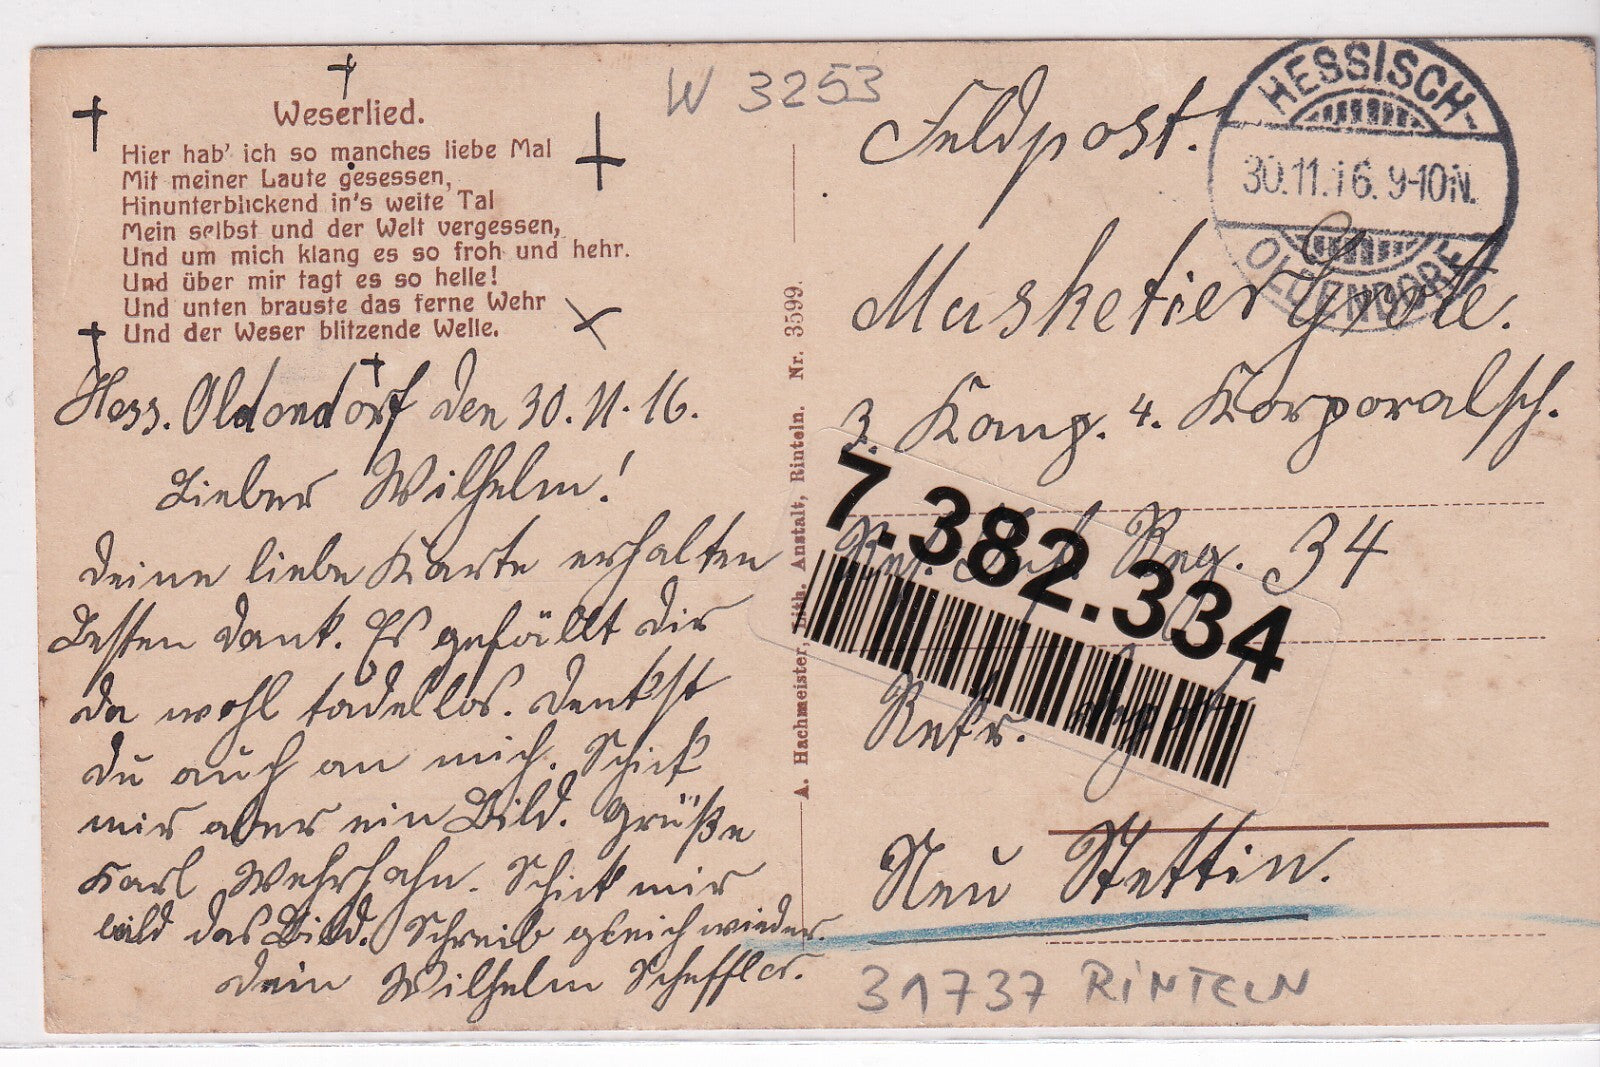 Weserlied.
Hier hab' ich so manches liebe Mal
Mit meiner Laute gesessen,
Hinunterblickend in's weite Tal
Mein selbst und der Welt vergessen,
Und um mich klang es so froh und hehr.
Und über mir tagt es so helle!
Und unten brauste das ferne Wehr
Und der Weser blitzende Welle.
Hess. Oldendorf den 30.11.16.
Lieber Wilhelm!
Deine liebe Karte erhalten
Besten Dank. Es gefällt Dir
da wohl tadellos. Denkst
Du auch an mich. Schick
mir aber ein Bild. Grüße
Karl Wehrhahn. Schick mir
bald das Bild. Schreib gleich wieder.
Dein Wilhelm Scheffler.
A. Hachmeister, Lith. Anstalt, Rinteln. Nr. 3599.
W 3253
Feldpost.
HESSISCH-
30.11.16. 9-10N.
OLDENDORF
Musketier Grote.
3. Komp. 4. Korporalsch.
Inf. Reg. 34
7.382.334
Rekr.
Neu Stettin.
31737 RINTELN